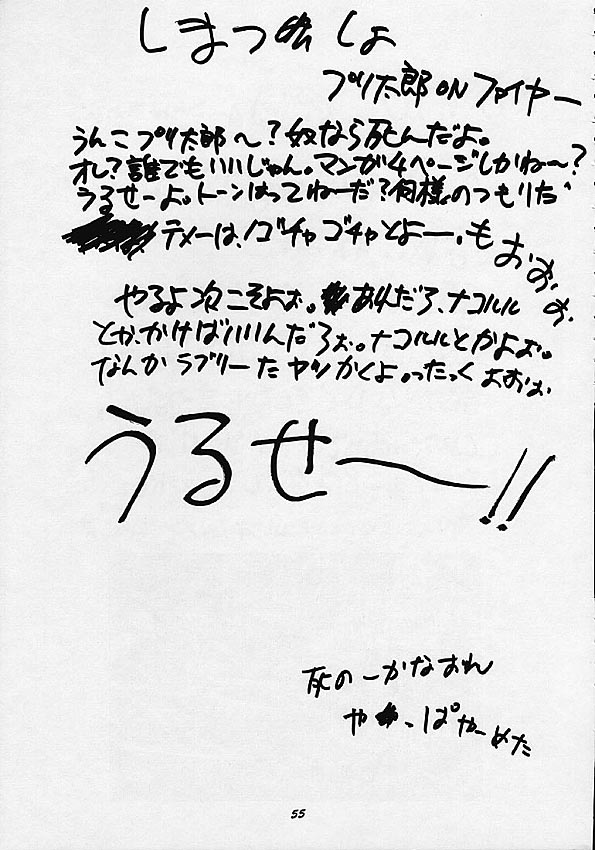 しまつ しょ
プリ太郎 ON ファイヤー
うんこプリ太郎〜?奴なら死んだよ。
オレ?誰でもいいじゃん。マンガ4ページしかね〜?
うるせーよ。トーンはってねーだ?何様のつもりだ
テメーは、ゴチャゴチャとよー、も おおお、
やるよ次こそよぉ。あれだろ、ナコルル
とか、かけばいいんだろぉ。ナコルルとかよぉ。
なんかラブリーたヤツかくよ。ったっく よおぉぉ
うるせー!!
死のーかなおれ
や っぱやーめた
55